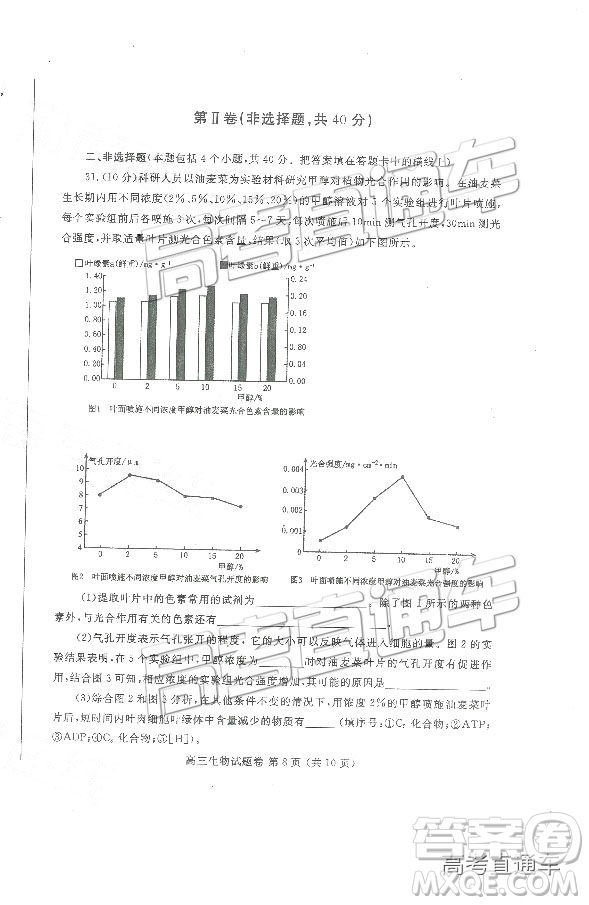 第Ⅱ卷(非选择题,共40分)
二、非选择题(本题包括4个小题,共40分。把答案填在答题卡中的横线上)
31.(10分)科研人员以油麦菜为实验材料研究甲醇对植物光合作用的影响。在油麦菜
生长期内用不同浓度(2%、5%、10%、15%、20%)的甲醇溶液对5个实验组进行叶片喷施,
每个实验组前后各喷施3次,每次间隔5~7天,每次喷施后10min测气孔开度,30min测光
合强度,并取适量叶片测光合色素含量,结果(取3次平均值)如下图所示。
□叶绿素a(鲜重)/mg·g⁻¹ ■叶绿素b(鲜重)/mg·g⁻¹
1.40 0.24
1.20 0.20
1.00 0.16
0.80
0.60 0.12
0.40 0.08
0.20 0.04
0.00 0.00
0 2 5 10 15 20
甲醇/%
图1 叶面喷施不同浓度甲醇对油麦菜光合色素含量的影响
气孔开度/μm
10
9
8
7
6
5
4
0 2 5 10 15 20
甲醇/%
图2 叶面喷施不同浓度甲醇对油麦菜气孔开度的影响
光合强度/mg·cm⁻²·min
0.004
0.003
0.002
0.001
0.000
0 2 5 10 15 20
甲醇/%
图3 叶面喷施不同浓度甲醇对油麦菜光合强度的影响
(1)提取叶片中的色素常用的试剂为________。除了图1所示的两种色
素外,与光合作用有关的色素还有________。
(2)气孔开度表示气孔张开的程度,它的大小可以反映气体进入细胞的量。图2的实
验结果表明,在5个实验组中,甲醇浓度为________时对油麦菜叶片的气孔开度有促进作
用,结合图3可知,相应浓度的实验组光合强度会________。
(3)综合图2和图3分析,在其他条件不变的情况下,用浓度为20%的甲醇喷施油麦菜叶
片后,短时间内叶肉细胞叶绿体中含量减少的物质有____(填序号:①C₃化合物;②ATP;
③ADP;④C₅化合物;⑤[H])。
高三生物试题卷 第8页(共10页)
高考直通车
答案圈
高考直通车
MXQE.COM